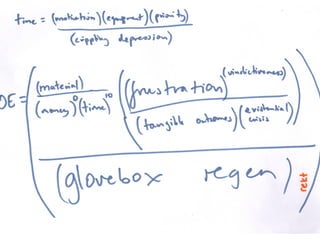 time = (motivation)(equipment)(priority)
(crippling depression)
OE =
(material)
(money)⁰(time)¹⁰
(frustration)^(vindictiveness)
(tangible outcomes)(existential crisis)
(glovebox regen)
rekt